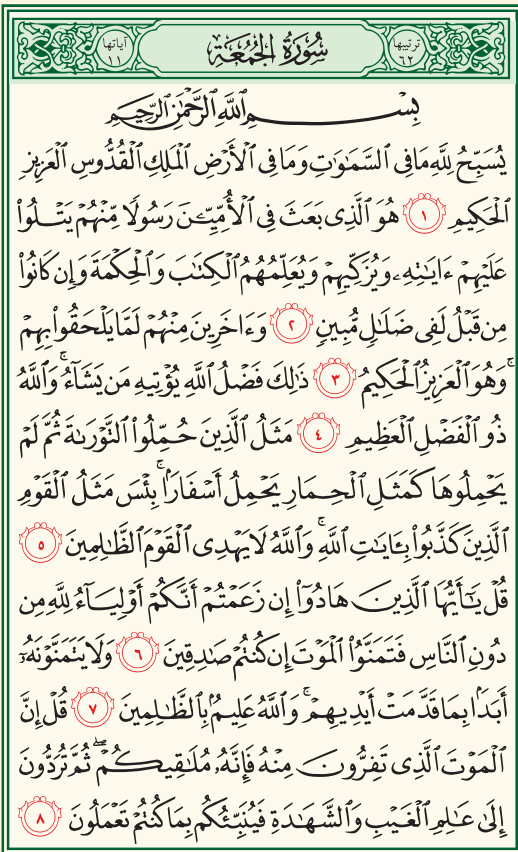 ترتيبها ٦٢ سُورَةُ الجُمُعَةِ آياتها ١١
بِسْمِ ٱللَّهِ ٱلرَّحْمَٰنِ ٱلرَّحِيمِ
يُسَبِّحُ لِلَّهِ مَا فِى ٱلسَّمَٰوَٰتِ وَمَا فِى ٱلْأَرْضِ ٱلْمَلِكِ ٱلْقُدُّوسِ ٱلْعَزِيزِ
ٱلْحَكِيمِ ١ هُوَ ٱلَّذِى بَعَثَ فِى ٱلْأُمِّيِّـۧنَ رَسُولًا مِّنْهُمْ يَتْلُوا۟
عَلَيْهِمْ ءَايَٰتِهِۦ وَيُزَكِّيهِمْ وَيُعَلِّمُهُمُ ٱلْكِتَٰبَ وَٱلْحِكْمَةَ وَإِن كَانُوا۟
مِن قَبْلُ لَفِى ضَلَٰلٍ مُّبِينٍ ٢ وَءَاخَرِينَ مِنْهُمْ لَمَّا يَلْحَقُوا۟ بِهِمْ
ۚ وَهُوَ ٱلْعَزِيزُ ٱلْحَكِيمُ ٣ ذَٰلِكَ فَضْلُ ٱللَّهِ يُؤْتِيهِ مَن يَشَآءُ ۚ وَٱللَّهُ
ذُو ٱلْفَضْلِ ٱلْعَظِيمِ ٤ مَثَلُ ٱلَّذِينَ حُمِّلُوا۟ ٱلتَّوْرَىٰةَ ثُمَّ لَمْ
يَحْمِلُوهَا كَمَثَلِ ٱلْحِمَارِ يَحْمِلُ أَسْفَارًۢا ۚ بِئْسَ مَثَلُ ٱلْقَوْمِ
ٱلَّذِينَ كَذَّبُوا۟ بِـَٔايَٰتِ ٱللَّهِ ۚ وَٱللَّهُ لَا يَهْدِى ٱلْقَوْمَ ٱلظَّٰلِمِينَ ٥
قُلْ يَٰٓأَيُّهَا ٱلَّذِينَ هَادُوٓا۟ إِن زَعَمْتُمْ أَنَّكُمْ أَوْلِيَآءُ لِلَّهِ مِن
دُونِ ٱلنَّاسِ فَتَمَنَّوُا۟ ٱلْمَوْتَ إِن كُنتُمْ صَٰدِقِينَ ٦ وَلَا يَتَمَنَّوْنَهُۥٓ
أَبَدًۢا بِمَا قَدَّمَتْ أَيْدِيهِمْ ۚ وَٱللَّهُ عَلِيمٌۢ بِٱلظَّٰلِمِينَ ٧ قُلْ إِنَّ
ٱلْمَوْتَ ٱلَّذِى تَفِرُّونَ مِنْهُ فَإِنَّهُۥ مُلَٰقِيكُمْ ۖ ثُمَّ تُرَدُّونَ
إِلَىٰ عَٰلِمِ ٱلْغَيْبِ وَٱلشَّهَٰدَةِ فَيُنَبِّئُكُم بِمَا كُنتُمْ تَعْمَلُونَ ٨